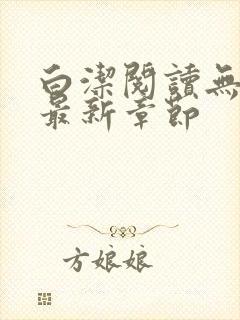 白潔閱讀無
最新章節
方娘娘